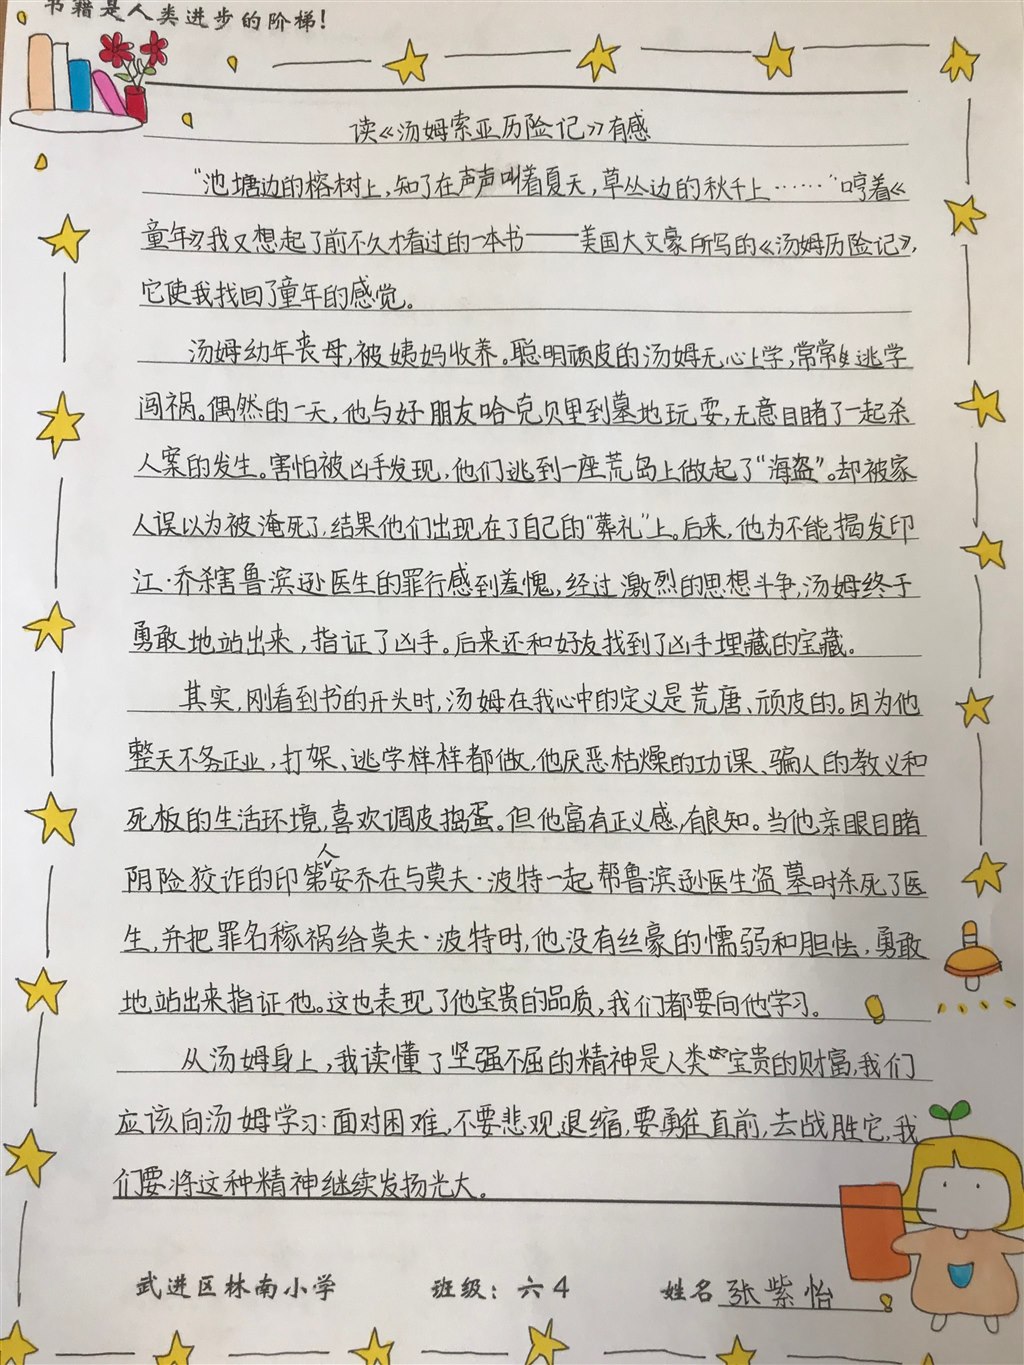 书籍是人类进步的阶梯!
读《汤姆索亚历险记》有感
“池塘边的榕树上,知了在声声叫着夏天,草丛边的秋千上……”哼着《
童年》我又想起了前不久才看过的一本书——美国大文豪所写的《汤姆历险记》,
它使我找回了童年的感觉。
汤姆幼年丧母,被姨妈收养。聪明顽皮的汤姆无心上学,常常逃学
闯祸。偶然的一天,他与好朋友哈克贝里到墓地玩耍,无意目睹了一起杀
人案的发生。害怕被凶手发现,他们逃到一座荒岛上做起了“海盗”。却被家
人误以为被淹死了,结果他们出现在了自己的“葬礼”上。后来,他为不能揭发印
江·乔杀害鲁滨逊医生的罪行感到羞愧,经过激烈的思想斗争,汤姆终于
勇敢地站出来,指证了凶手。后来还和好友找到了凶手埋藏的宝藏。
其实,刚看到书的开头时,汤姆在我心中的定义是荒唐、顽皮的。因为他
整天不务正业,打架、逃学样样都做,他厌恶枯燥的功课、骗人的教义和
死板的生活环境,喜欢调皮捣蛋。但他富有正义感,有良知。当他亲眼目睹
阴险狡诈的印第人安乔在与莫夫·波特一起帮鲁滨逊医生盗墓时杀死了医
生,并把罪名稼祸给莫夫·波特时,他没有丝豪的懦弱和胆怯,勇敢
地站出来指证他。这也表现了他宝贵的品质,我们都要向他学习。
从汤姆身上,我读懂了坚强不屈的精神是人类宝贵的财富,我们
应该向汤姆学习:面对困难,不要悲观退缩,要勇往直前,去战胜它,我
们要将这种精神继续发扬光大。
武进区林南小学 班级:六4 姓名 张紫怡